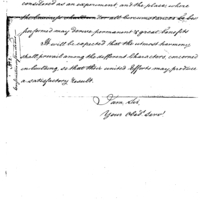 considered as an experiment, and the places where
for all circumstances to be
performed may derive permanent & great benefits
It will be expected that the utmost harmony
shall prevail among the different characters, concerned
in building, so that their united efforts may produce
a satisfactory result.
I am Sir
Your Obed. Serv.